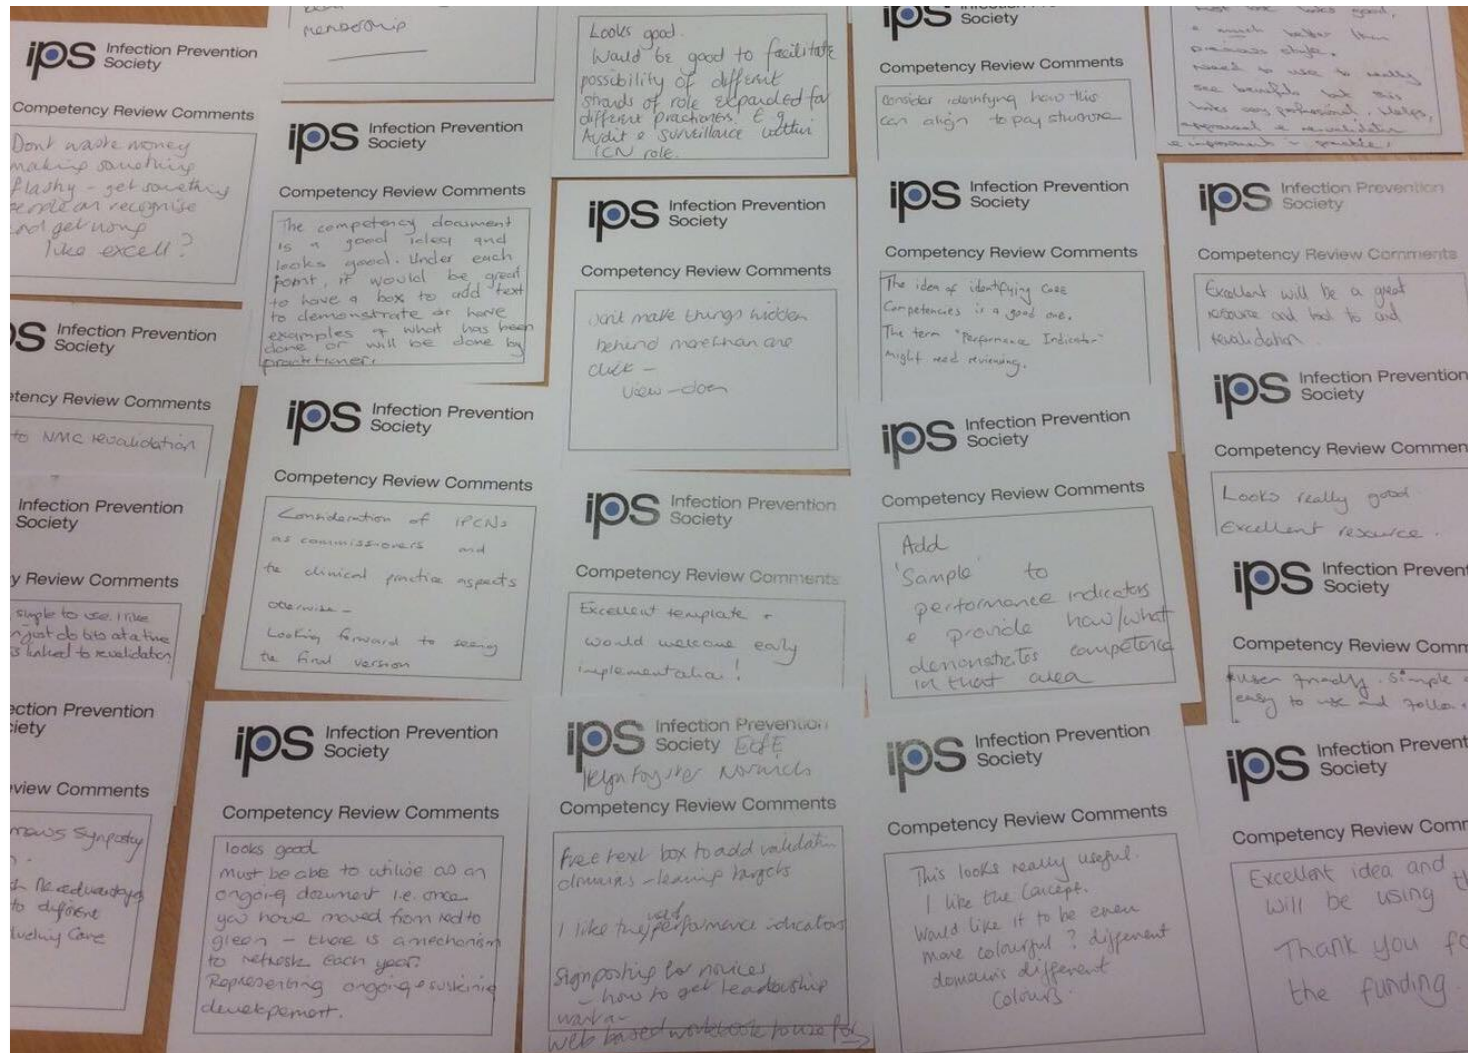 ips Infection Prevention
Society
Competency Review Comments
Dont waste money
making something
flashy - get something
people can recognise
and get using
like excell?
S Infection Prevention
Society
tency Review Comments
to NMC revalidation
Infection Prevention
Society
y Review Comments
simple to use. I like
just do bits at a time
s linked to revalidation
ection Prevention
iety
view Comments
to different
Care
membership
ips Infection Prevention
Society
Competency Review Comments
The competency document
is a good idea and
looks good. Under each
point, it would be great
to have a box to add text
to demonstrate or have
examples of what has been
done or will be done by
practitioner.
ips Infection Prevention
Society
Competency Review Comments
Consideration of IPCNs
as commissioners and
the clinical practice aspects
otherwise -
Looking forward to seeing
the final version
ips Infection Prevention
Society
Competency Review Comments
looks good
must be able to utilise as an
ongoing document i.e. once
you have moved from red to
green - there is a mechanism
to refresh each year?
Representing ongoing & sustaining
development.
Looks good.
Would be good to facilitate
possibility of different
strands of role expanded for
different practioners. E.g.
Audit & surveillance within
ICN role.
ips Infection Prevention
Society
Competency Review Comments
Dont make things hidden
behind more than one
click -
view - down
ips Infection Prevention
Society
Competency Review Comments
Excellent template &
would welcome early
implementation!
ips Infection Prevention
Society
Norwich
Competency Review Comments
Free text box to add validation
domains - learning targets
I like the word performance indicators
signposting for novices
- how to get leadership
web based to use for
ips Society
Competency Review Comments
Consider identifying how this
can align to pay structure
ips Infection Prevention
Society
Competency Review Comments
The idea of identifying CORE
Competencies is a good one.
The term "Performance Indicator"
might need reviewing.
ips Infection Prevention
Society
Competency Review Comments
Add
'Sample' to
performance indicators
& provide how/what
demonstrates competence
in that area
ips Infection Prevention
Society
Competency Review Comments
This looks really useful.
I like the concept.
Would like it to be even
more colourful ? different
domains different
colours.
looks good,
& much better than
previous style.
Need to use to really
see benefits but this
looks very professional. Helps,
appraisal & revalidation
& improvement in practice.
ips Infection Prevention
Society
Competency Review Comments
Excellent will be a great
resource and tool to aid
revalidation.
ips Infection Prevention
Society
Competency Review Commen
Looks really good.
Excellent resource.
ips Infection Prevent
Society
Competency Review Comm
user friendly. Simple
easy to use and follow.
ips Infection Prevent
Society
Competency Review Comm
Excellent idea and
will be using th
Thank you fo
the funding.